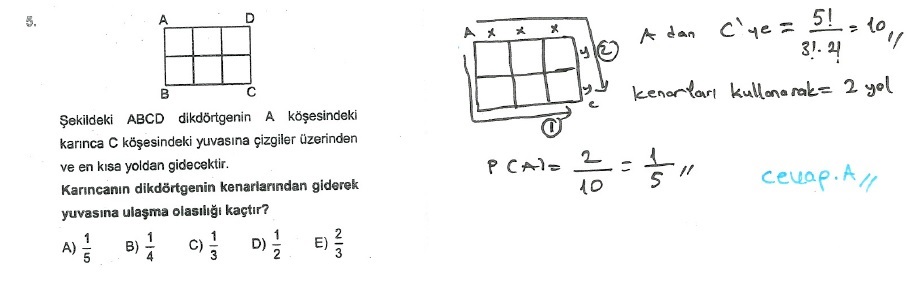 5.
A D
B C
Şekildeki ABCD dikdörtgenin A köşesindeki
karınca C köşesindeki yuvasına çizgiler üzerinden
ve en kısa yoldan gidecektir.
Karıncanın dikdörtgenin kenarlarından giderek
yuvasına ulaşma olasılığı kaçtır?
A) 1/5 B) 1/4 C) 1/3 D) 1/2 E) 2/3
A x x x
y 2
y c
1
A dan C'ye = 5!/3!.2! = 10,,
kenarları kullanarak= 2 yol
P(A)= 2/10 = 1/5 ,,
cevap.A,,